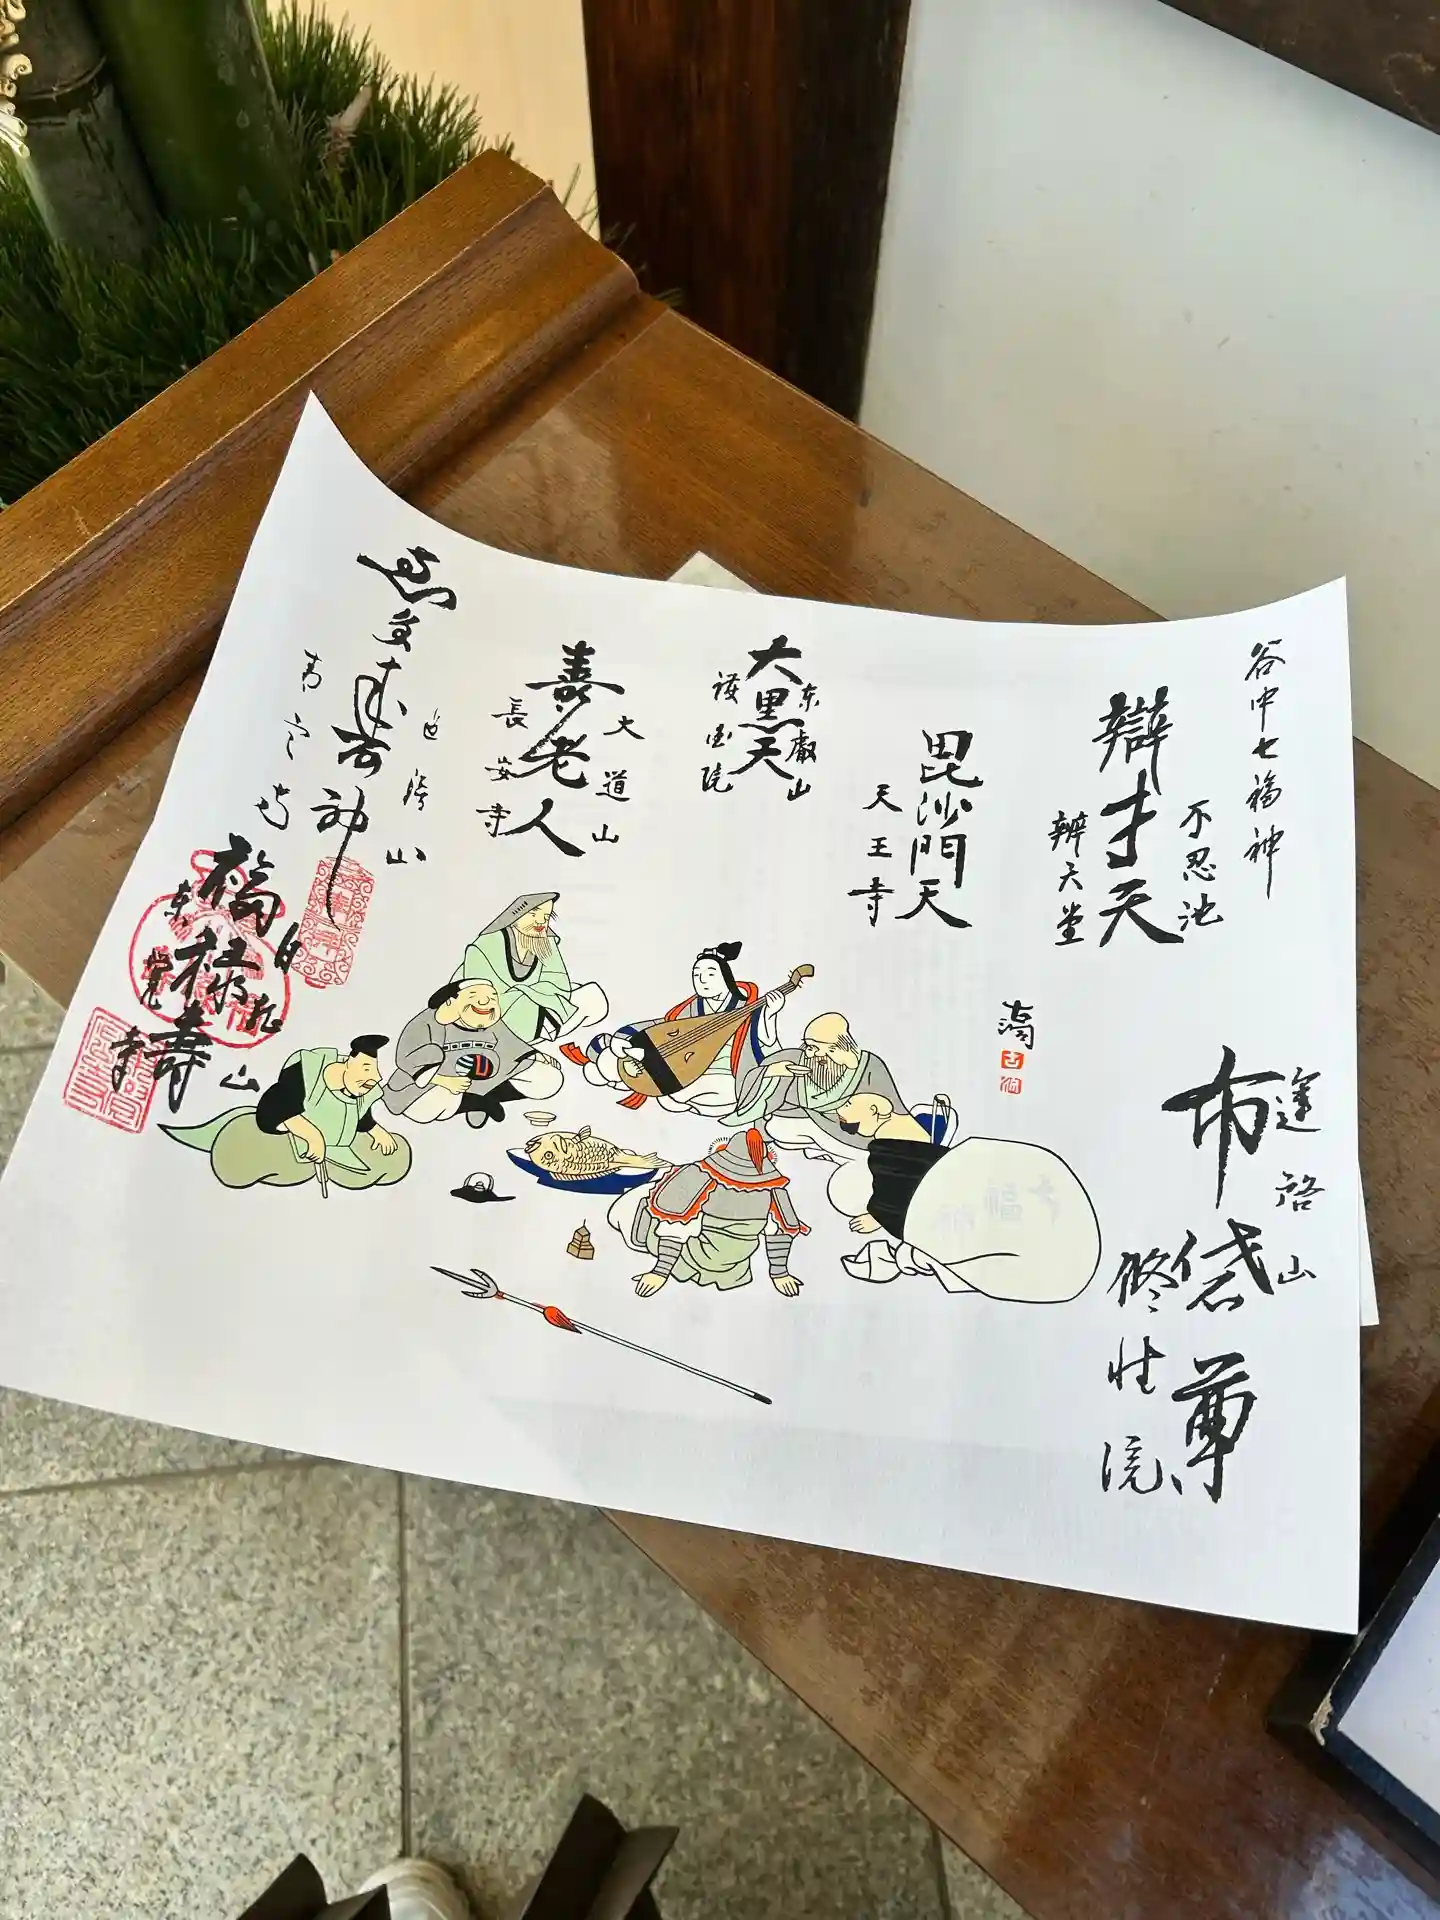 谷中七福神
不忍池
辯才天
辨天堂
毘沙門天
天王寺
东叡山
大黒天
護国院
大道山
壽老人
長安寺
山
恵比寿神
青雲寺
白龍山
福禄壽
东覚寺
蓬啓山
布袋尊
修性院